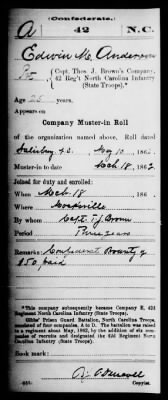 (Confederate.)
A 42 N.C.
Edwin M. Anderson
Pvt, Capt. Thos. J. Brown's Company,
42 Reg't North Carolina Infantry
(State Troops).*
Age 25 years.
Appears on
Company Muster-in Roll
of the organization named above. Roll dated
Salisbury N.C. May 10, 1862.
Muster-in to date Mch 18, 1862.
Joined for duty and enrolled:
When Mch 18, 186
Where Mocksville
By whom Capt. T.J. Brown
Period Three years
Remarks: Bounty of
$50 paid
*This company subsequently became Company E, 42d
Regiment North Carolina Infantry (State Troops).
Gibbs' Prison Guard Battalion, North Carolina Troops,
consisted of four companies, A to D. The battalion was raised
to a regiment about May, 1862, by the addition of six com-
panies of recruits and designated the 42d Regiment North
Carolina Infantry (State Troops).
Book mark:
Copyist.